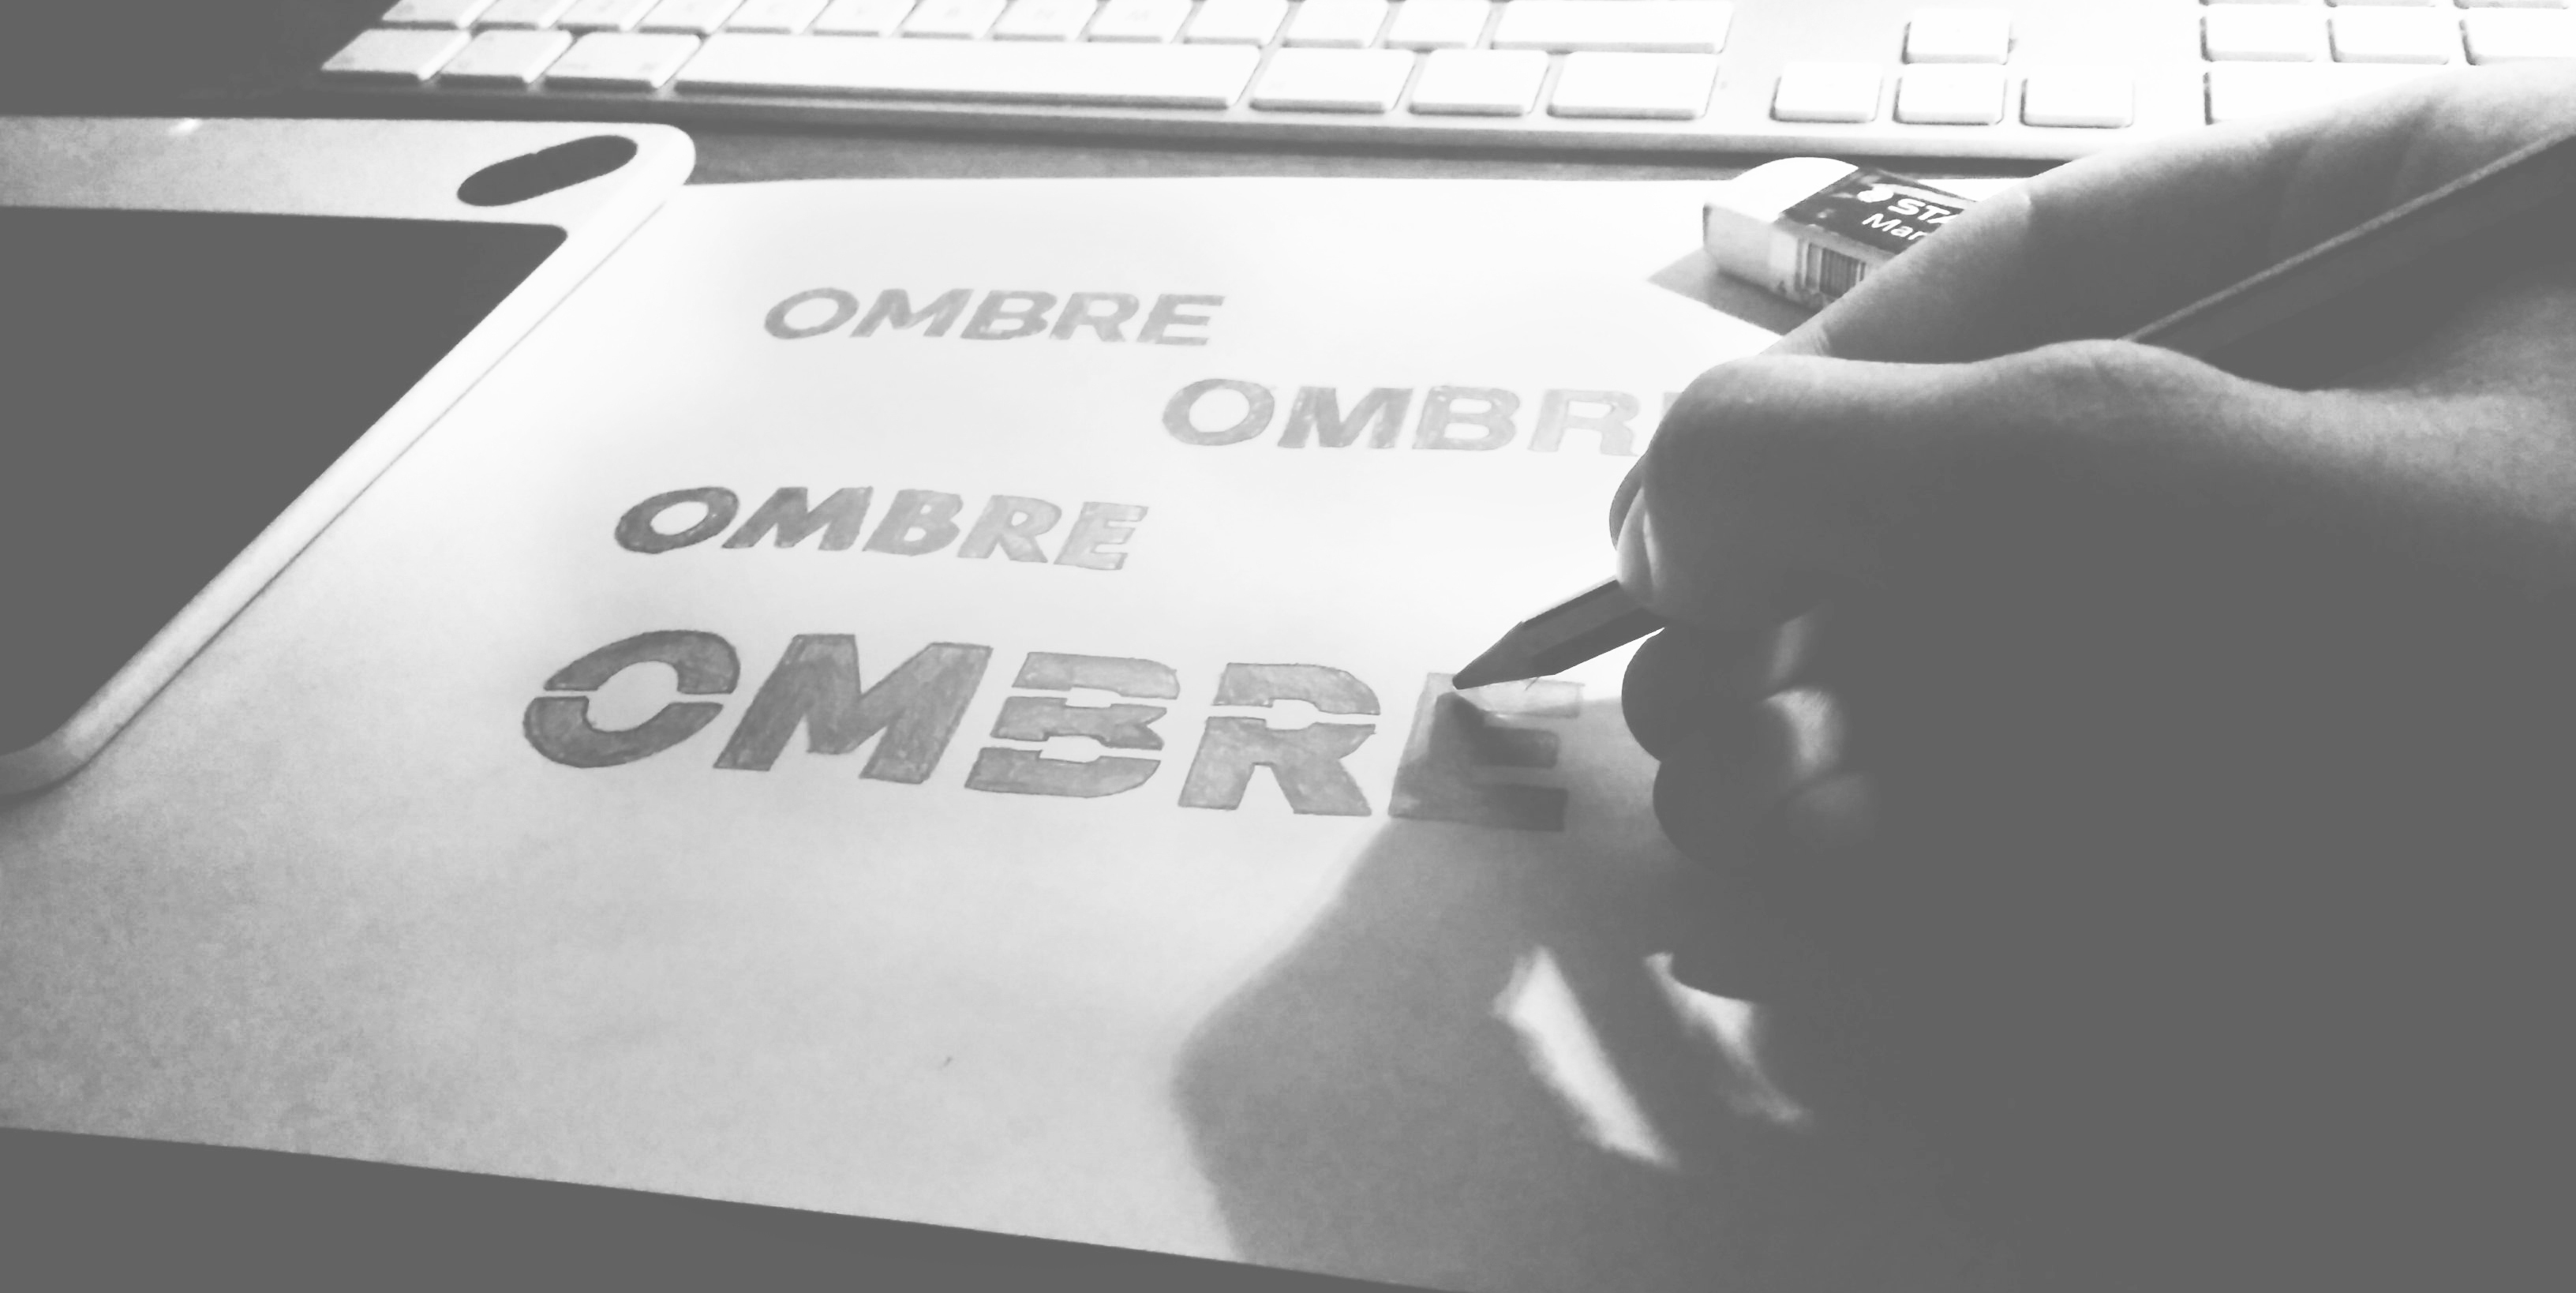 STA
Mar
OMBRE
OMBR
OMBRE
OMBRE